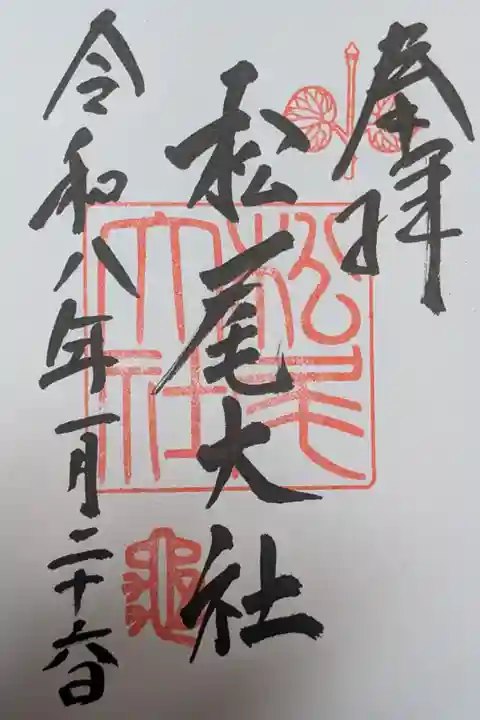 奉拝
松尾大社
令和八年一月二十六日
松尾
大社
亀